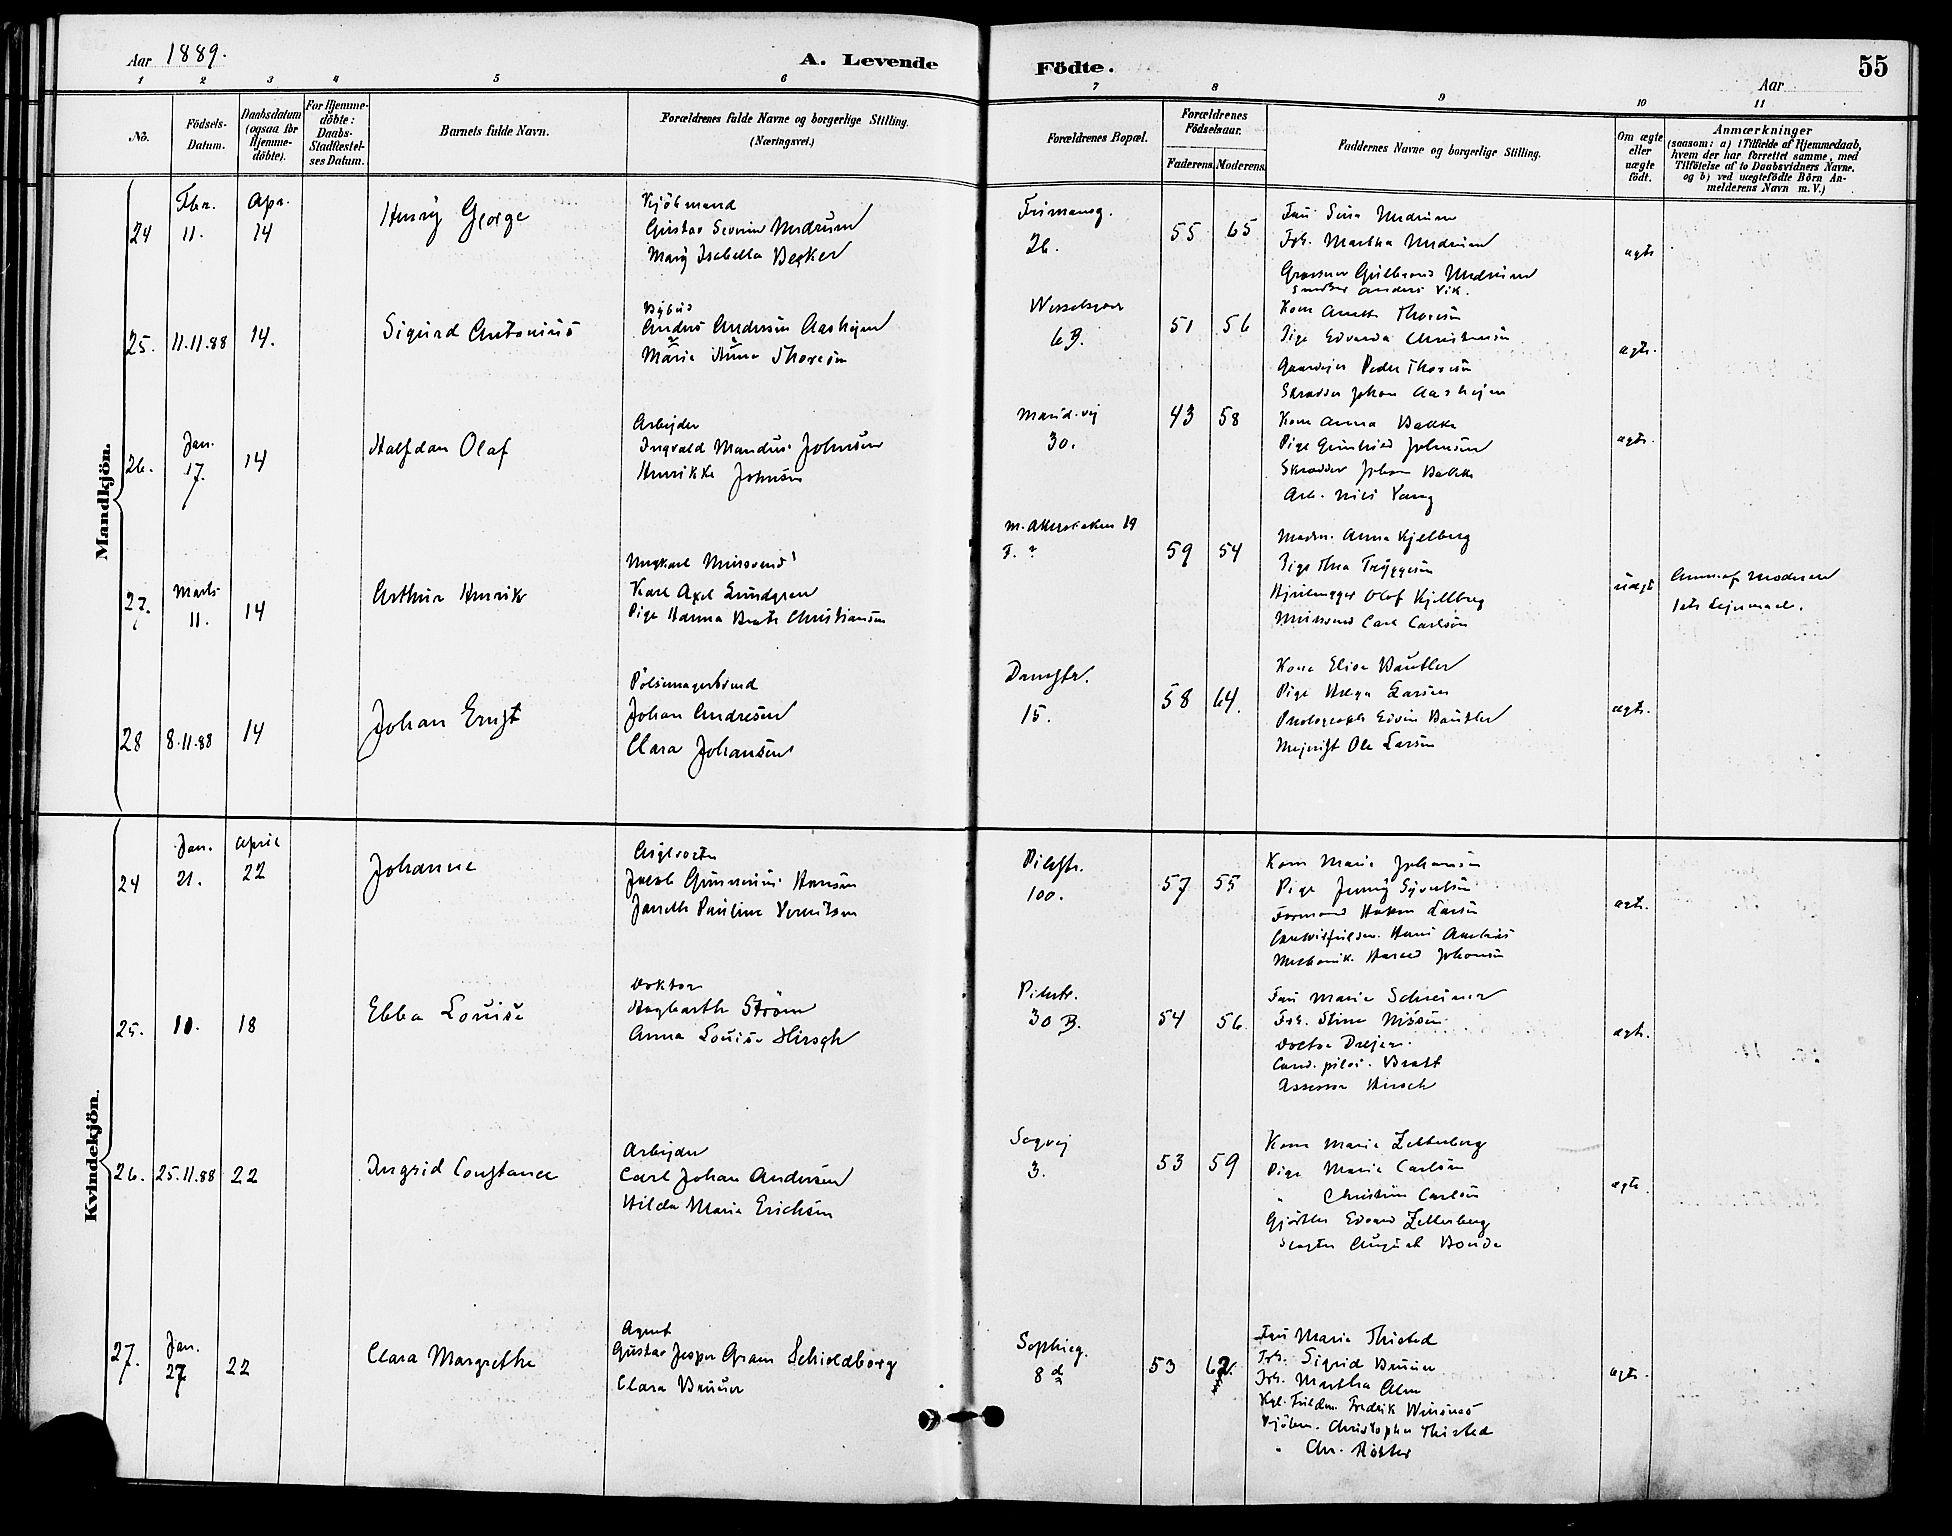 Aar 1889.
A. Levende Födte.
55
Aar
1 2 3 4 5 6 7 8 9 10 11
No.
Födsels-Datum.
Daabsdatum (ogsaa for Hjemme-döbte).
For Hjemme-döbte: Daabs-Stadfæstelses Datum.
Barnets fulde Navn.
Forældrenes fulde Navne og borgerlige Stilling.
(Næringsvei.)
Forældrenes Bopæl.
Forældrenes Födselsaar.
Faderens. Moderens.
Faddernes Navne og borgerlige Stilling.
Om ægte eller uægte födt.
Anmærkninger
(saasom: a) i Tilfælde af Hjemmedaab, hvem der har forrettet samme, med Tilföielse af to Daabsvidners Navne. og b) ved uægtefödte Börn Anmelderens Navn m. V.)
Mandkjön.
24
Fbr. 11.
Apr. 14
Henry George
Kjöbmand
Gustav Severin Undrum
Mary Isabella Becker
Frimansg.
26.
55 65
Fru Sina Undrum
Frk. Martha Undrum
Grosserer Gulbrand Undrum
Anders Vik.
ægte
25. 11.11.88 14.
Sigurd Antonius
Anders Andersen Aashejm
Marie Anna Thoresen
6 B.
51 56
Kone Anette Thoresen
Pige Edvarda Christensen
Gaardejer Peder Thoresen
Skrædder Johan Aashejm
ægte.
26.
Jan. 17.
14
Halfdan Olaf
Arbejder
Ingvald Mandus Johnsen
Henrikke Johnsen
Marid.vej
30.
43 58
Kone Anna Bakke
Pige Johnsen
Skrædder Johan Bakke
Arb. Nils Vang
ægte.
27.
Marts 11.
14
Arthur Henrik
Ungkarl Mursvend
Karl Axel Lundgren
Pige Hanna Beate Christiansen
19
59 54
Madm. Anna Kjelberg
Pige Thea Tryggesen
Hjulmager Olof Kjellberg
Mursvend Carl Carlsön
uægte
Anm. af Moderen
1ste Lejermaal.
28 8.11.88 14
Johan Ernst
Pölsemagersvend
Johan Andresen
Clara Johansen
15.
58 64.
Kone Elise Bautler
Pige Helga Larsen
Photograph Edvin Bautler
Mejerist Ole Larsen
ægte.
Kvindekjön.
24
Jan. 21.
April 22
Johanne
Jacob Gunnerius Hansen
Janette Pauline Berntsen
Pilestr.
100.
57 55
Kone Marie Johansen
Pige Jenny Syvertsen
Formand Hakon Larsen
Hans
Mechanik. Harald Johansen
ægte.
25. 10. 18
Ebba Louise
Doktor
Hagbarth Ström
Anna Louise Hirsch
Pilestr.
30 B.
54 56.
Fru Marie Schreiner
Frk. Stine Nissen
Doctor Drejer.
Cand. Bratt
Assessor Hirsch
ægte.
26. 25.11.88 22
Ingrid Constance
Arbejder
Carl Johan Andersen
Hilda Maria Erichsen
Sagvej
3.
53 59
Kone Marie Zetterberg
Pige Marie Carlsen
" Christine Carlsen
Gjörtler Edvard Zetterberg
August Bonde
ægte.
27.
Jan. 27
22
Clara Margrethe
Agent
Gustav Jesper Gram Schieldborg
Clara Bruun
Sophieg.
8 d
53 62.
Fru Marie Thisted
Frk. Sigrid Bruun
Frk. Martha Alm
Kgl. Fuldm. Fredrik Winsnes
Kjöbm. Christopher Thisted
" Chr. Köster
ægte.